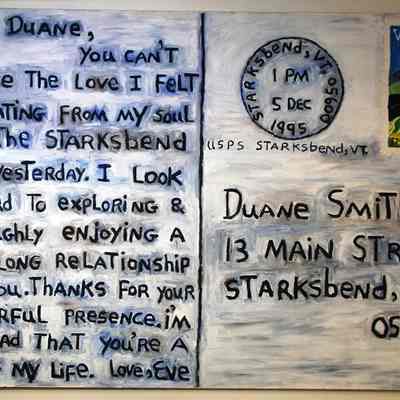 DUANE,
YOU CAN'T
THE LOVE I FELT
FROM MY SOUL
THE STARKSBEND
YESTERDAY. I LOOK
TO EXPLORING &
ENJOYING A
LONG RELATIONSHIP
YOU. THANKS FOR YOUR
PRESENCE. I'M
THAT YOU'RE A
MY LIFE. LOVE, EVE
STARKSBEND, VT. 05600
1 PM
5 DEC
1995
USPS STARKSBEND, VT.
DUANE
13 MAIN
STARKSBEND,